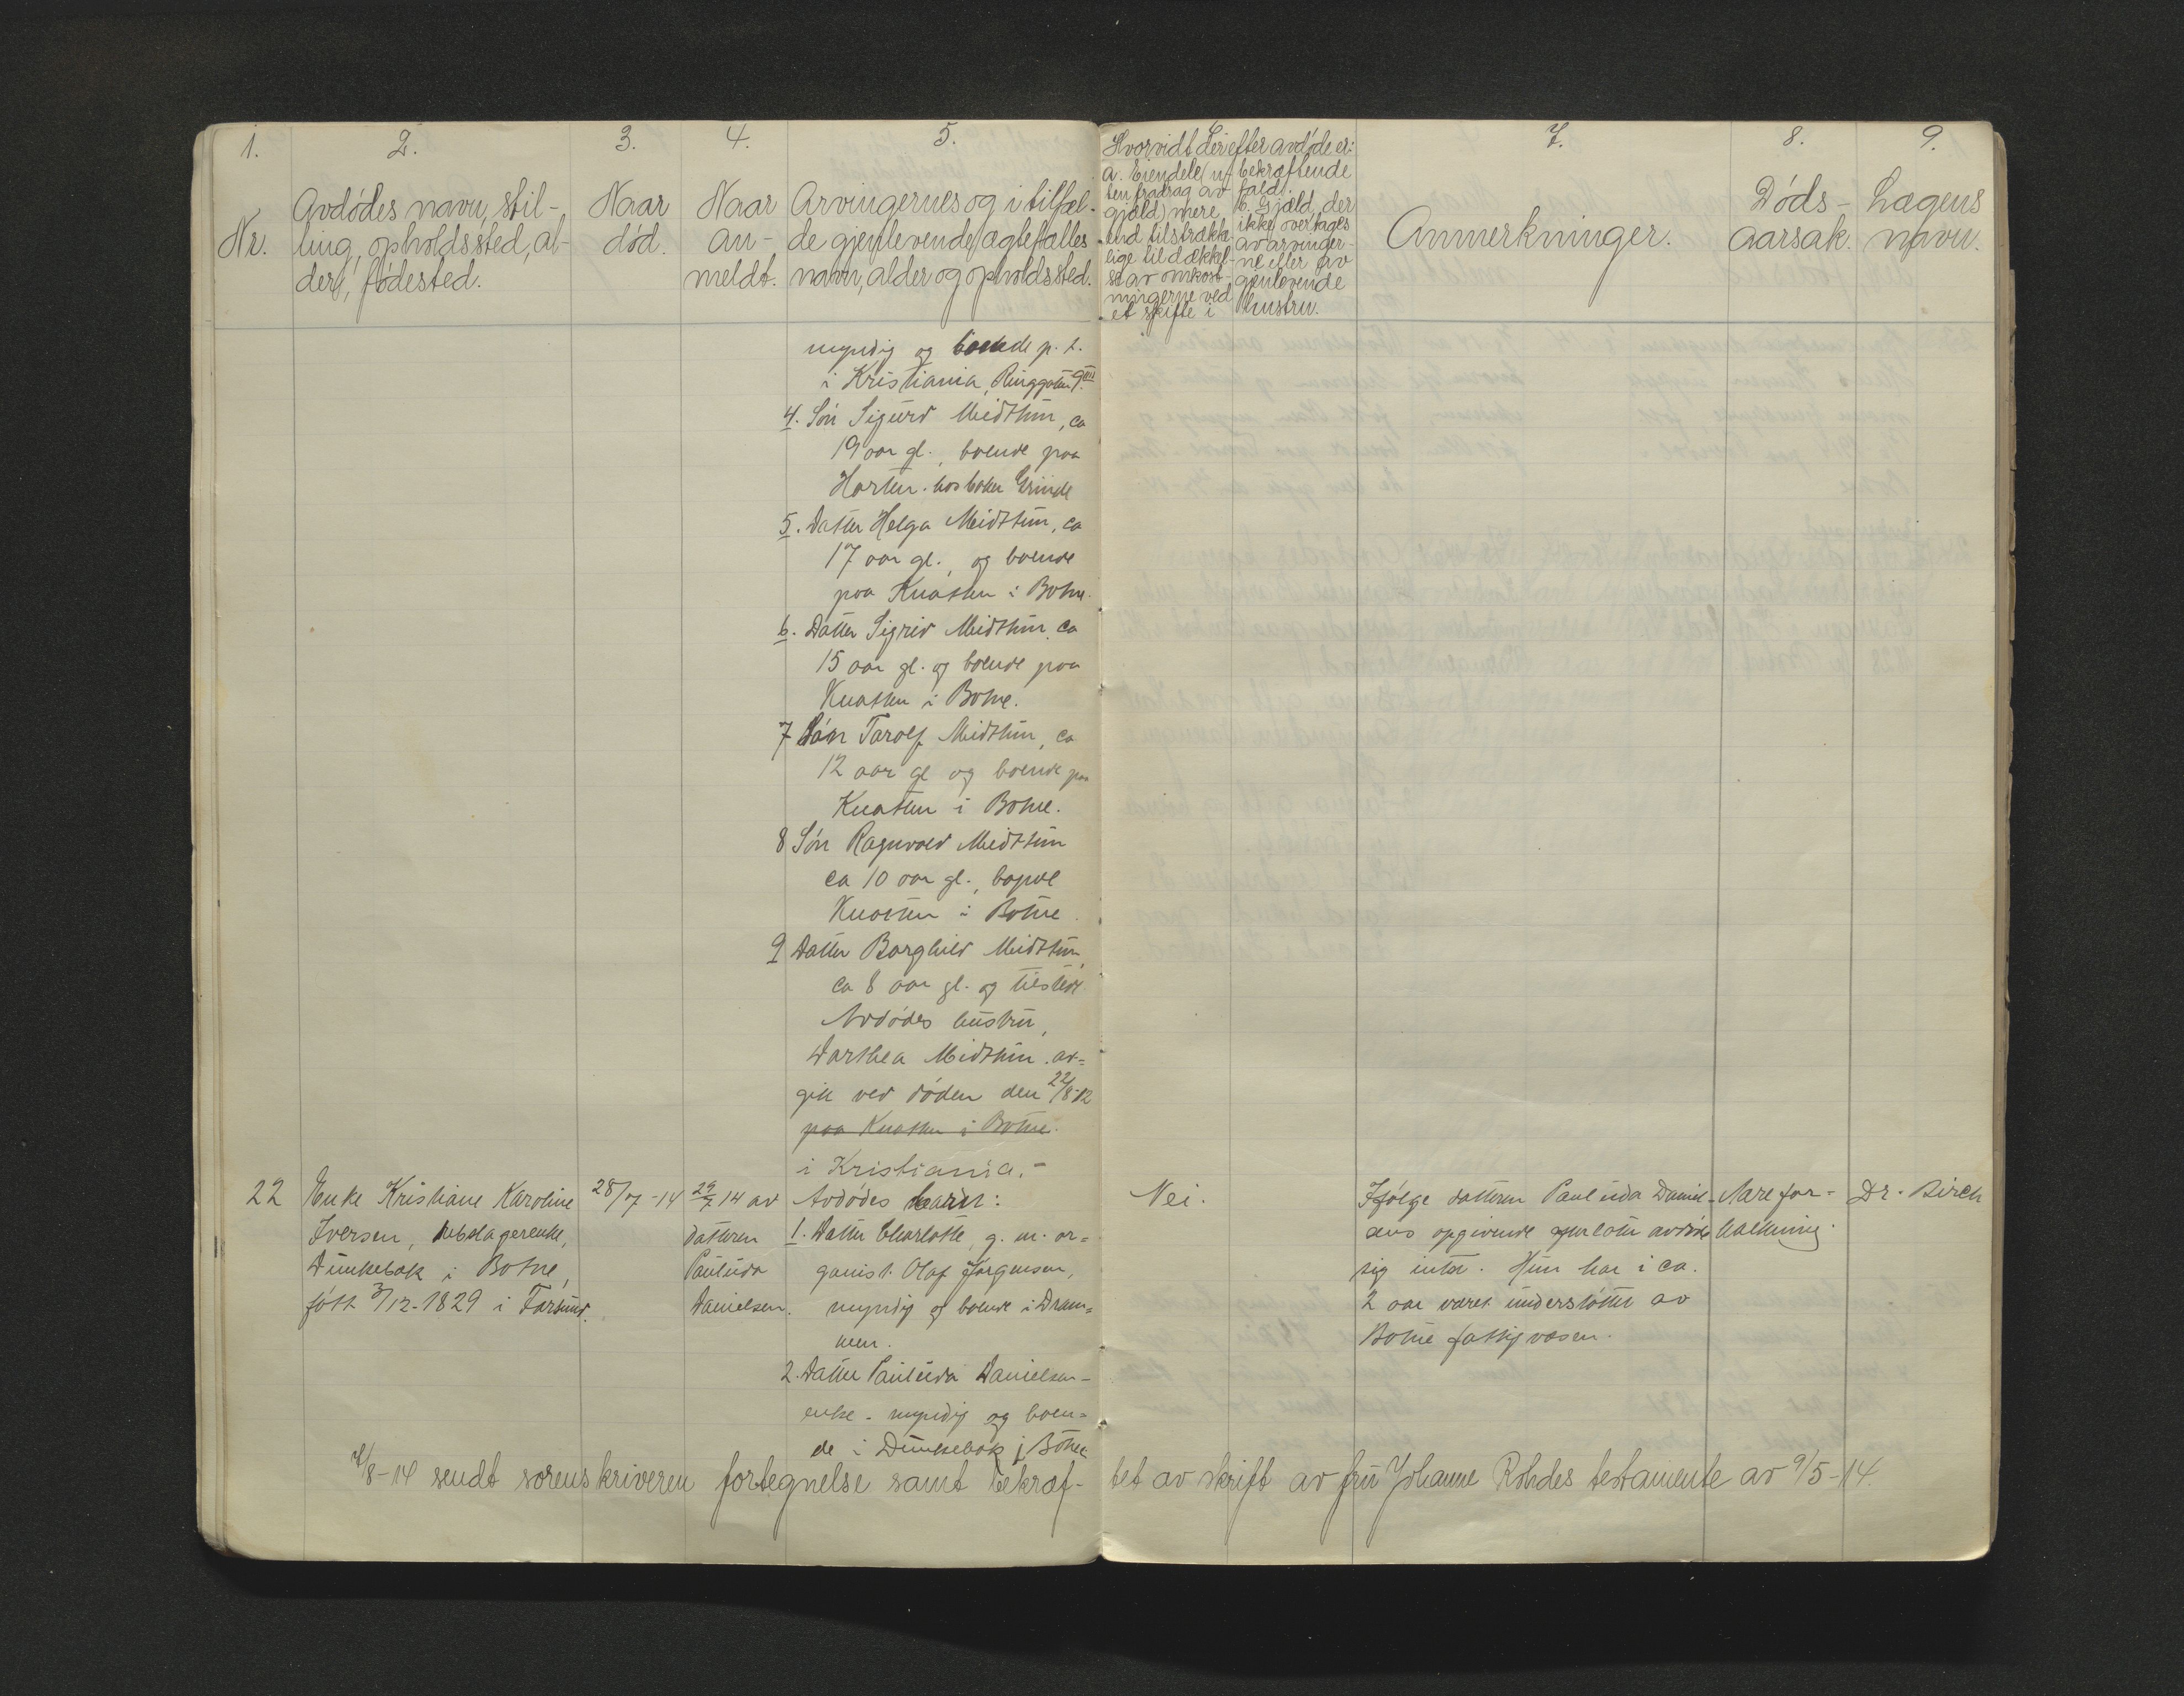 1.
2.
3.
4.
5.
6.
7.
8.
9.
Nr.
Avdødes navn, stil-
ling, opholdssted, al-
der, fødested.
Naar
død.
Naar
an-
meldt.
Arvingernes og i tilfæl-
de gjenlevende ægtefælles
navn, alder og opholdssted.
Hvorvidt der efter avdøde er:
a. Eiendele (uf
ten fradrag av
gjæld) mere
end tilstrækk-
lige til dækkel-
se av omkost-
ningerne ved
et skifte i
bekræftende
fald.
b. Gjæld, der
ikke overtages
av arvinger-
ne eller av
gjenlevende
hustru.
Anmerkninger.
Døds-
aarsak.
Lægens
navn.
myndig og boende p. t.
i Kristiania, Ringgaten 9 III
4. Søn Sigurd Midttun, ca
19 aar gl., boende paa
Horten hos baker Grinde
5. Datter Helga Midttun, ca
17 aar gl., og boende
paa Knatten i Botne.
6. Datter Sigrid Midttun, ca
15 aar gl. og boende paa
Knatten i Botne.
7 Søn Tarolf Midttun, ca
12 aar gl og boende paa
Knatten i Botne.
8 Søn Ragnvald Midttun
ca 10 aar gl., bopæl
Knatten i Botne.
9 Datter Borghild Midttun,
ca 8 aar gl. og tilstede
Avdødes hustru,
Dorthea Midttun av-
gik ved døden den 22/8-12
paa Knatten i Botne.
i Kristiania.-
22
Enke Kristiane Karoline
Iversen, rebslagerenke,
Dunkebæk i Botne,
født 3/12-1829 i Farsund.
28/7-14
29/7 14 av
datteren
Paulida
Danielsen.
Avdødes barn:
1. Datter Charlotte, g. m. or-
ganist Olaf Jørgensen,
myndig og boende i Dram-
men.
2. Datter Paulida Danielsen-
enke - myndig og boen-
de i Dunkebæk i Botne.
Nei.
Ifølge datteren Paulida Daniel-
sens opgivende efterlater avdøde
sig intet. Hun har i ca.
2 aar været understøttet av
Botne fattigvæsen.
Aarefor-
kalkning.
Dr. Birch
4/8-14 sendt sorenskriveren fortegnelse samt bekræf-tet avskrift av fru Johanne Rohdes testamente av 9/5-14.